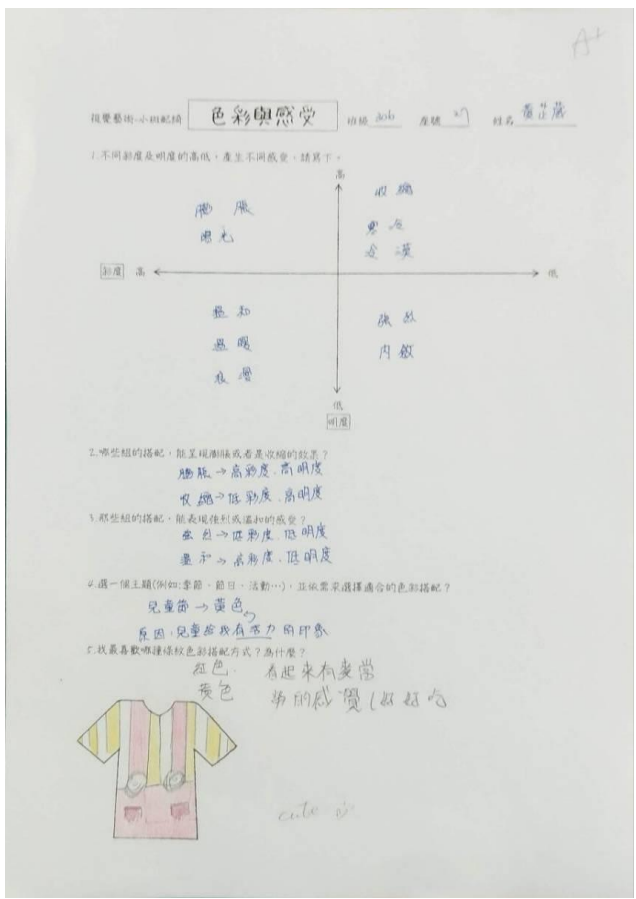 A+
視覺藝術-小組配搭 色彩與感受 班級 306 座號 27 姓名 黃芷葳
1.不同彩度及明度的高低，產生不同感覺，請寫下。
高
收縮
膨脹
寒冷
陽光
冷漠
彩度 高 低
溫和
強烈
溫暖
內斂
浪漫
低
明度
2.哪些組的搭配，能呈現膨脹或者是收縮的效果？
膨脹→高彩度.高明度
收縮→低彩度.高明度
3.那些組的搭配，能表現強烈或溫和的感覺？
強烈→低彩度.低明度
溫和→高彩度.低明度
4.選一個主題(例如:季節、節日、活動…)，並依需求選擇適合的色彩搭配？
兒童節→黃色
原因:兒童給我有活力的印象
5.我最喜歡哪種條紋色彩搭配方式？為什麼？
紅色. 看起來有麥當
黃色 勞的感覺(好好吃
cute